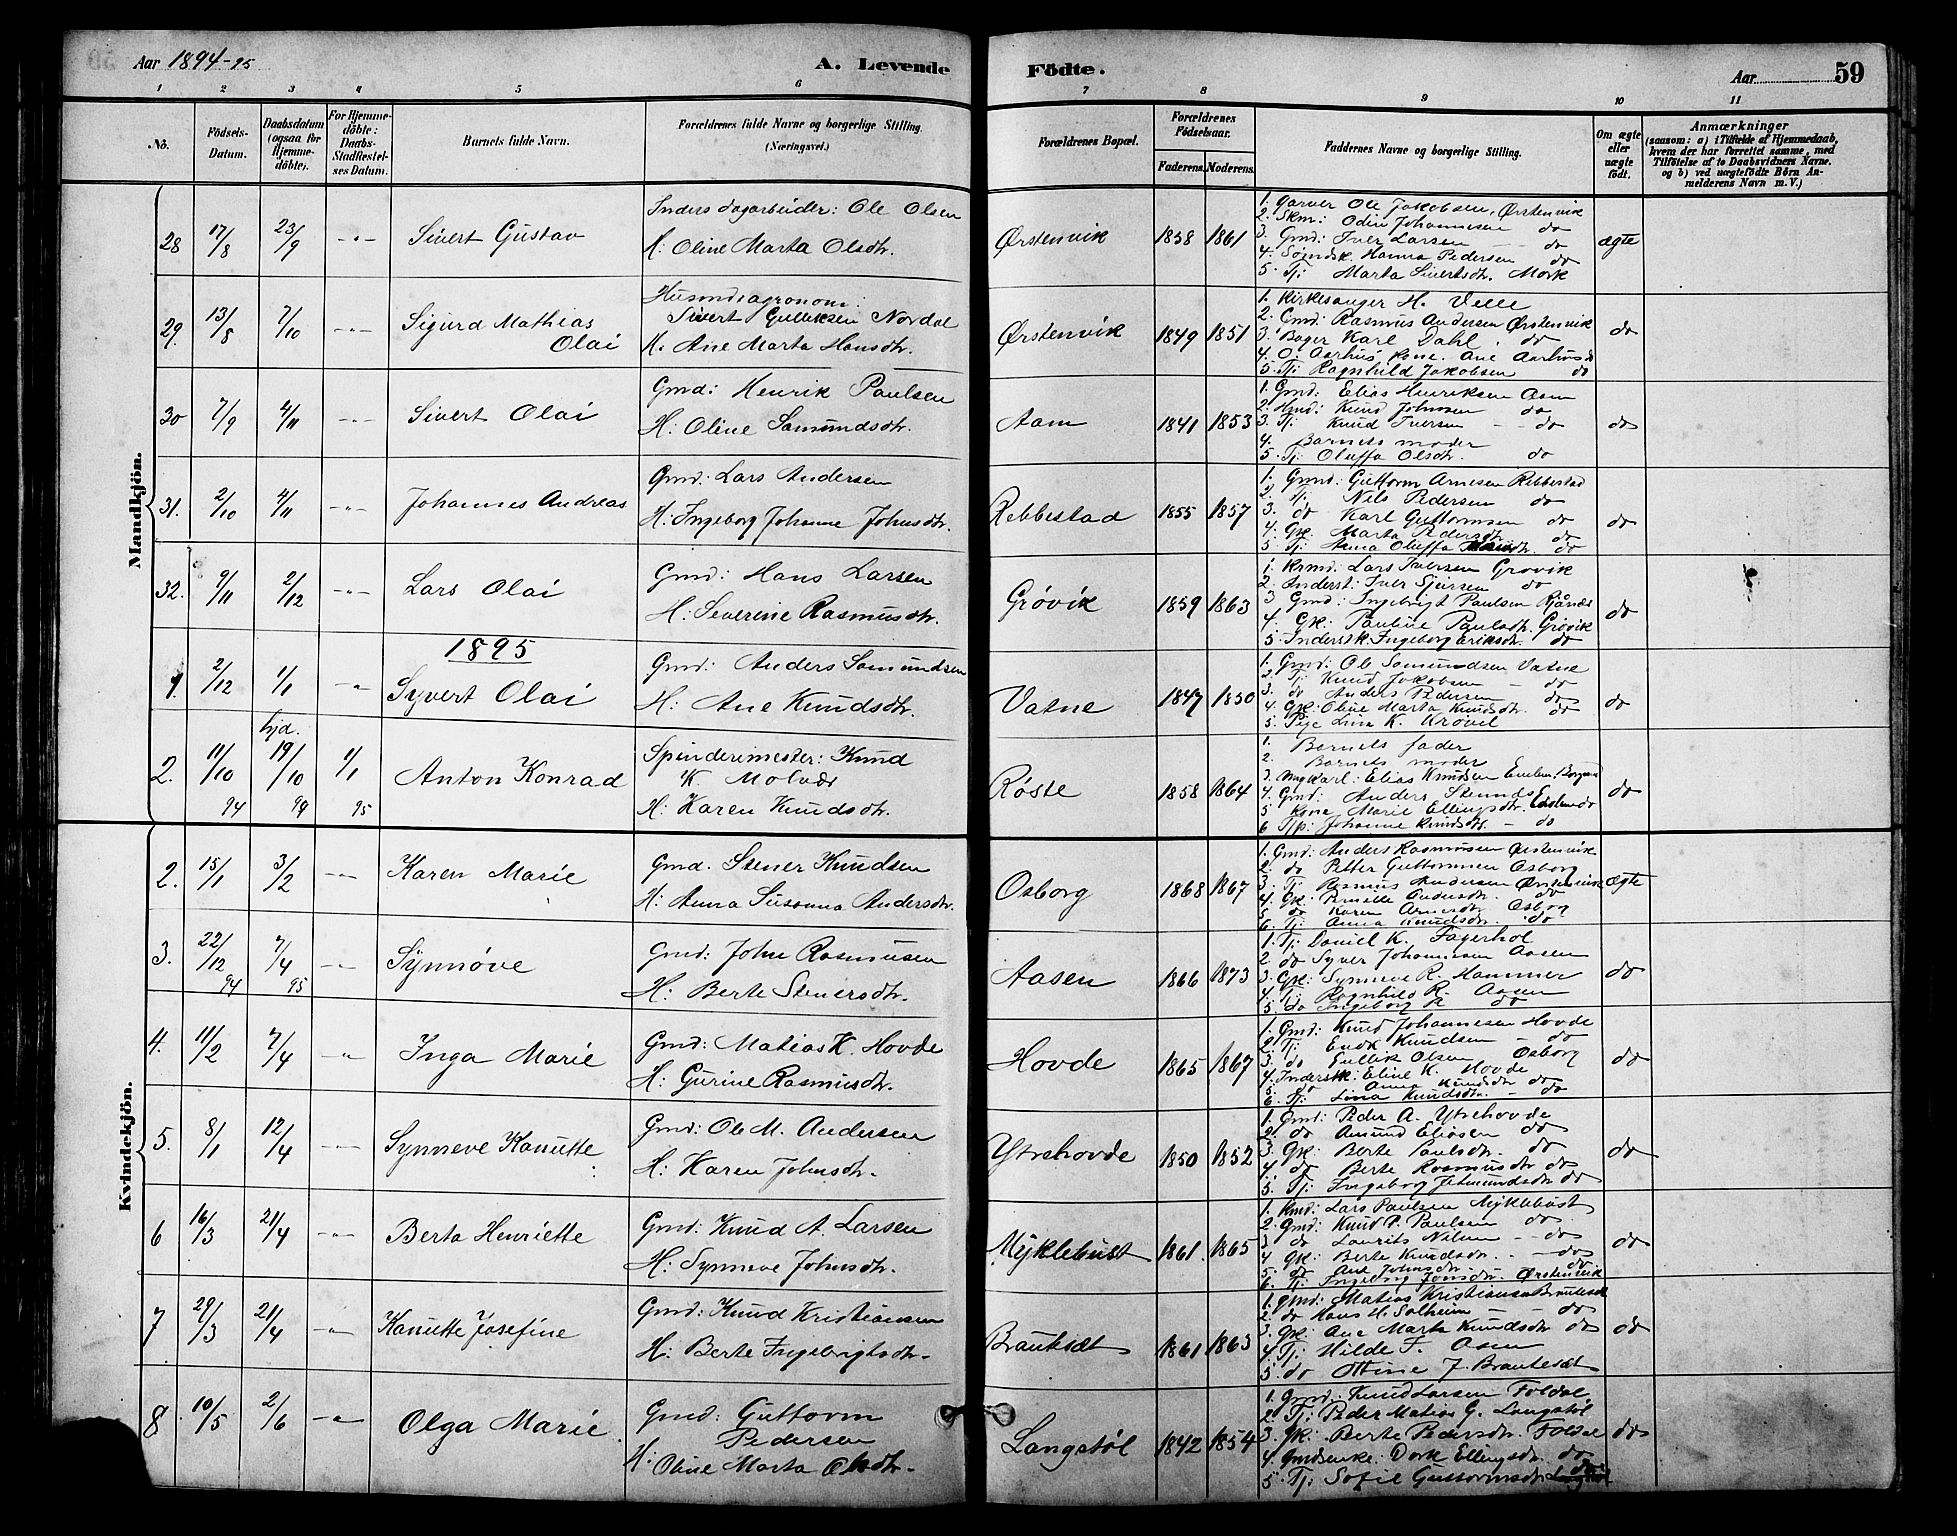 Aar 1894-95
A. Levende
Födte.
Aar 59
1 2 3 4 5 6 7 8 9 10 11
No.
Födsels-Datum.
Daabsdatum (ogsaa for Hjemmedöbte).
For Hjemmedöbte: Daabs-Stadfæstelses Datum.
Barnets fulde Navn.
Forældrenes fulde Navne og borgerlige Stilling.
(Næringsvei.)
Forældrenes Bopæl.
Forældrenes Födselsaar.
Faderens. Moderens.
Faddernes Navne og borgerlige Stilling.
Om ægte eller uægte födt.
Anmærkninger
(saasom: a) i Tilfælde af Hjemmedaab, hvem der har forrettet samme, med Tilföielse af to Daabsvidners Navne. og b) ved uægtefödte Börn Anmelderens Navn m. V.)
Mandkjön.
28 17/8 23/9 -"- Sivert Gustav
Inders dagarbeider: Ole Olsen
H: Oline Marta Olsdtr.
Ørstenvik 1858 1861
1. Garver Ole Jakobsen, Ørstenvik
2. Skm: Odin Johannesen do
3. Gmd: Iver Larsen do
4. Hanna Pedersen do
5. Tj: Marta Sivertsdtr. Mork
ægte
29. 13/8 7/10 -"- Sigurd Mathias
Olai
Husmdsagronom:
Sivert Gulliksen Nordal
H. Ane Marta Hansdtr.
Ørstenvik 1849 1851
1. Kirkesanger H. Velle
2. Gmd: Rasmus Andersen Ørstenvik
3. Bager Karl Dahl. do
4. O. Aarhus' kone. Ane Aarhus do
5. Tj: Ragnhild Jakobsen do
do
30 7/9 4/11 -"- Sivert Olai
Gmd: Henrik Paulsen
H: Oline Samundsdtr.
Aam 1841 1853
1. Gmd: Elias Henriksen Aam
2. Knud Johnsen do
3. Tj: Knud Iversen do
4. Barnets moder
5. Tj: Oluffa Olsdtr. do
do
31. 2/10 4/11 -"- Johannes Andreas
Gmd: Lars Andersen
H: Ingeborg Johanne Johnsdtr.
Rebbestad 1855 1857
1. Gmd: Guttorm Arnesen Rebbestad
2. Tj: Nils Pedersen do
3. do Karl Guttormsen do
4. Gk: Marta Pedersdtr. do
5. Tj: Anna Oluffa do
do
32. 9/11 2/12 -"- Lars Olai
Gmd: Hans Larsen
H: Severine Rasmusdtr.
Grøvik 1859 1863
1. Lars Iversen Grøvik
2. Inderst: Iver do
3. Gmd: Ingebrigt Paulsen
4. Gk: Pauline Paulsdtr. Grøvik
5. Inderstk. Ingeborg Eriksdtr. do
do
1895
1 2/12 1/1 -"- Syvert Olai
Gmd: Anders Samundsen
H: Ane Knudsdtr.
Vatne 1847 1850
1. Gmd: Ole Samundsen Vatne
2. Tj: Knud Jakobsen - do
3. do Anders Pedersen do
4. Gk: Oline Marta Knudsdtr. do
5. Pige Lina K. Krøvel
do
hjd.
2. 11/10 94 19/10 94 1/1 95 Anton Konrad
Spinderimester: Knud
K. Molvær
H: Karen Knudsdtr.
Røste 1858 1864
1. Barnets fader
2. Barnets moder
3. Ungkarl: Elias Knudsen
4. Gmd: Anders
5 Kone Marie Ellingsdtr.
6 Johanne Knudsdtr. - do
do
Kvindekjön.
2. 15/1 3/2 -"- Karen Marie
Gmd. Stener Knudsen
H: Anna Susanna Andersdtr.
Osborg 1868 1867
1. Gmd: Anders Rasmussen Ørstenvik
2. do Petter Guttormsen Osborg
3. Tj: Rasmus Andersen Ørstenvik
4. Gk: Pernille Andersdtr. do
5. do Karen Arnesdtr. Osborg
6. Tj: Anna Knudsdtr. do
ægte
3. 22/12 94 7/4 95 -"- Synnøve
Gmd: John Rasmusen
H: Berte Stenersdtr.
Aasen 1866 1873
1. Tj: Daniel K. Fagerhol
2 do Syver Johannesen Aasen
3. Gk: Synneve R. Hammer
4. Tj: Ragnhild R. Aasen
5. do Ingeborg R do
do
4. 11/2 7/4 -"- Inga Marie
Gmd: Matias K. Hovde
H: Gurine Rasmusdtr.
Hovde 1865 1867
1. Gmd: Knud Johannesen Hovde
2. Tj: Knudsen - do
3. do Gullik Olsen Osborg
4. Inderstk: Eline K. Hovde
5. do Anna Knudsdtr do
6. Tj: Lina Knudsdtr. - do
do
5. 8/1 12/4 -"- Synneve Kanutte
Gmd: Ole M. Andersen
H: Karen Johnsdtr.
Ytrehovde 1850 1852
1. Gmd: Peder A. Ytrehovde
2. do Amund Eliasen do
3. Gk: Berte Paulsdtr. do
4. do Berte Rasmusdtr do
5. Tj: Ingeborg do
do
6 16/3 21/4 -"- Berta Henriette
Gmd: Knud A. Larsen
H: Synneve Johnsdtr.
Myklebust 1861. 1865
1. Lars Paulsen Myklebust
2. Gmd: Knud P. Paulsen do
3 do Laurits Nilsen - do
4. Gk: Berte Knudsdtr. - do
5. do Ane Johnsdtr. do
6. Tj: Ingeborg Jonsdtr. Ørstenvik
do
7 29/3 21/4 -"- Kanutte Josefine
Gmd: Knud Kristiansen
H: Berte Ingebrigtsdtr.
Brautesæt 1861 1863
1. Gmd: Matias Kristiansen Brautesæt
2. do Hans H. Solheim - do
3. Gk: Ane Marta Knudsdtr do
4. Tj: Hilde F. Aasen
5. do Ottine J. Brautesæt
do
8 10/5 2/6 -"- Olga Marie
Gmd: Guttorm
Pedersen
H: Oline Marta Olsdtr.
Langstøl 1842 1854
1. Gmd: Knud Larsen Foldal
2. Tj: Peder Matias G. Langstøl
3. Gk: Berte Pedersdtr. Foldal
4. Gmdsenke. Dort Ellingsdtr. do
5. Tj: Sofie Guttormsdtr do
do